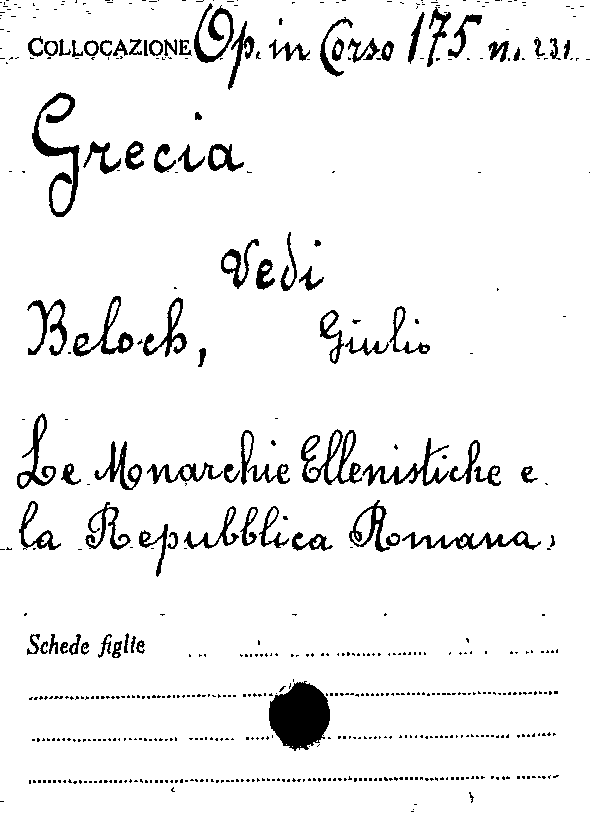 COLLOCAZIONE Op. in Corso 175 n. 231
Grecia
Vedi
Beloch, Giulio
Le Monarchie Ellenistiche e
la Repubblica Romana,
Schede figlie